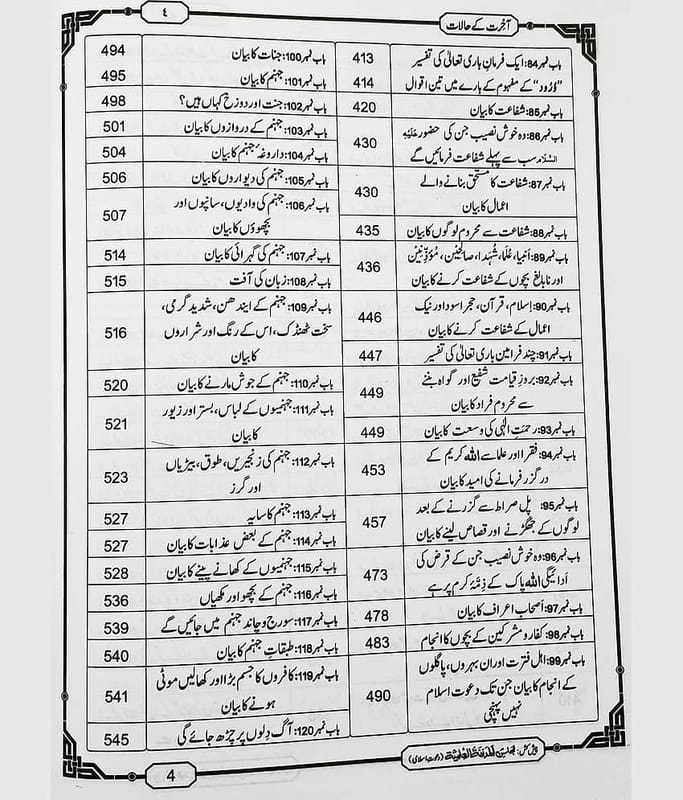 آخرت کے حالات
٤
باب نمبر84: ایک فرمانِ باری تعالیٰ کی تفسیر 413
”وُرُود“ کے مفہوم کے بارے میں تین اقوال 414
باب نمبر85: شفاعت کا بیان 420
باب نمبر86: وہ خوش نصیب جن کی حضور عَلَیْہِ
السَّلَام سب سے پہلے شفاعت فرمائیں گے 430
باب نمبر87: شفاعت کا مستحق بنانے والے
اعمال کا بیان 430
باب نمبر88: شفاعت سے محروم لوگوں کا بیان 435
باب نمبر89: اَنبیا، عُلَما، شُہَدا، صالحین، مُؤَذِّنِیْن
اور نابالغ بچوں کے شفاعت کرنے کا بیان 436
باب نمبر90: اسلام، قرآن، حجر اسود اور نیک
اعمال کے شفاعت کرنے کا بیان 446
باب نمبر91: چند فرامین باری تعالیٰ کی تفسیر 447
باب نمبر92: بروزِ قیامت شفیع اور گواہ بننے
سے محروم افراد کا بیان 449
باب نمبر93: رحمتِ الٰہی کی وسعت کا بیان 449
باب نمبر94: فقرا اور علما سے اللہ کریم کے
درگزر فرمانے کی امید کا بیان 453
باب نمبر95: پل صراط سے گزرنے کے بعد
لوگوں کے جھگڑنے اور قصاص لینے کا بیان 457
باب نمبر96: وہ خوش نصیب جن کے قرض کی
اَدائیگی اللہ پاک کے ذِمَّۂ کرم پر ہے 473
باب نمبر97: اَصحابِ اعراف کا بیان 478
باب نمبر98: کفار و مشرکین کے بچوں کا انجام 483
باب نمبر99: اہل فترت اور ان بہروں، پاگلوں
کے انجام کا بیان جن تک دعوت اسلام
نہیں پہنچی 490
باب نمبر100: جنات کا بیان 494
باب نمبر101: جہنم کا بیان 495
باب نمبر102: جنت اور دوزخ کہاں ہیں؟ 498
باب نمبر103: جہنم کے دروازوں کا بیان 501
باب نمبر104: داروغۂ جہنم کا بیان 504
باب نمبر105: جہنم کی دیواروں کا بیان 506
باب نمبر106: جہنم کی وادیوں، سانپوں اور
بچھوؤں کا بیان 507
باب نمبر107: جہنم کی گہرائی کا بیان 514
باب نمبر108: زبان کی آفت 515
باب نمبر109: جہنم کے ایندھن، شدید گرمی،
سخت ٹھنڈک، اس کے رنگ اور شراروں
کا بیان 516
باب نمبر110: جہنم کے جوش مارنے کا بیان 520
باب نمبر111: جہنمیوں کے لباس، بستر اور زیور
کا بیان 521
باب نمبر112: جہنم کی زنجیریں، طوق، بیڑیاں
اور گرز 523
باب نمبر113: جہنم کا سایہ 527
باب نمبر114: جہنم کے بعض عذابات کا بیان 527
باب نمبر115: جہنمیوں کے کھانے پینے کا بیان 528
باب نمبر116: جہنم کے بچھو اور مکھیاں 536
باب نمبر117: سورج و چاند جہنم میں جائیں گے 539
باب نمبر118: طبقاتِ جہنم کا بیان 540
باب نمبر119: کافروں کا جسم بڑا اور کھالیں موٹی
ہونے کا بیان 541
باب نمبر120: آگ دِلوں پر چڑھ جائے گی 545
پیش کش: مجلس المدینۃ العلمیۃ (دعوت اسلامی)
4